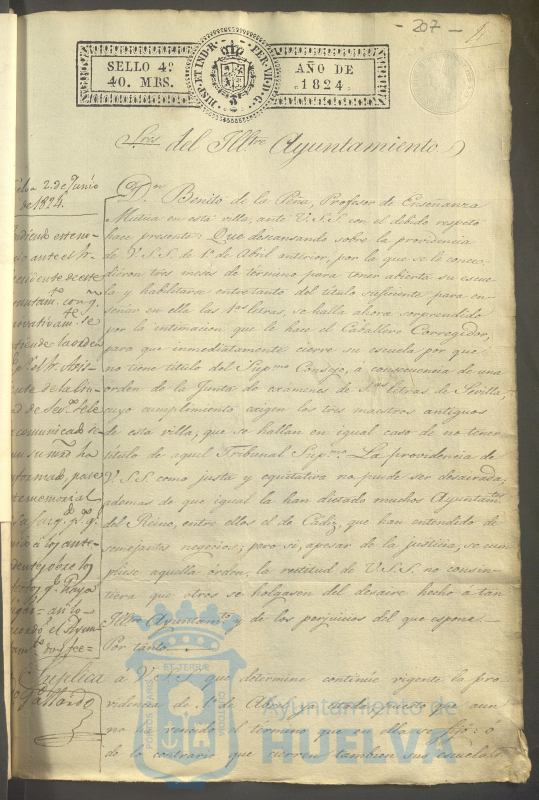 - 207 -
SELLO 4º
40. MRS.
HISP. ET IND. R. FER. VII. D. G.
AÑO DE
1824.
Sres. del Illtre. Ayuntamiento
2. de Junio
de 1824.
Dn. Benito de la Peña, Profesor de Enseñanza
Mutua en esta villa, ante V.S.S. con el debido respeto
hace presente: Que descansando sobre la providencia
de V.S.S. de 1º. de Abril anterior, por la que se le conce-
dieron tres meses de termino para tener abierta su escue-
la y habilitarse entretanto del titulo suficiente para en-
señar en ella las 1as. letras, se halla ahora sorprendido
por la intimacion que le hace el Caballero Corregidor,
para que inmediatamente cierre su escuela por que
no tiene titulo del Supmo. Consejo, a consecuencia de una
orden de la Junta de examenes de 1as. letras de Sevilla,
cuyo cumplimiento exigen los tres maestros antiguos
de esta villa, que se hallan en igual caso de no tener
titulo de aquel Tribunal Supmo. La providencia de
V.S.S. como justa y equitativa no puede ser desairada,
ademas de que igual la han dictado muchos Ayuntamtos.
del Reino, entre ellos el de Cadiz, que han entendido de
semejantes negocios; pero si, apesar de la justicia, se cum-
pliese aquella orden, la rectitud de V.S.S. no consin-
tiera que otros se holgasen del desaire hecho á tan
Illtre. Ayuntamto. y de los perjuicios del que espone.
Por tanto
Suplica á V.S.S. que determine continúe vigente la pro-
videncia de 1º. de Abril citada, puesto que aun
no ha vencido el termino que en ella se fijó: ó
de lo contrario que cierren tambien sus escuelas
ante el
con q.
comunicada
pase
memorial
á los ante-
sobre los
q. haya
acordó el Ayun-
Gallardo
ET TERRÆ
PORTUS MARIS
CUSTODIA
Ayuntamiento de
HUELVA